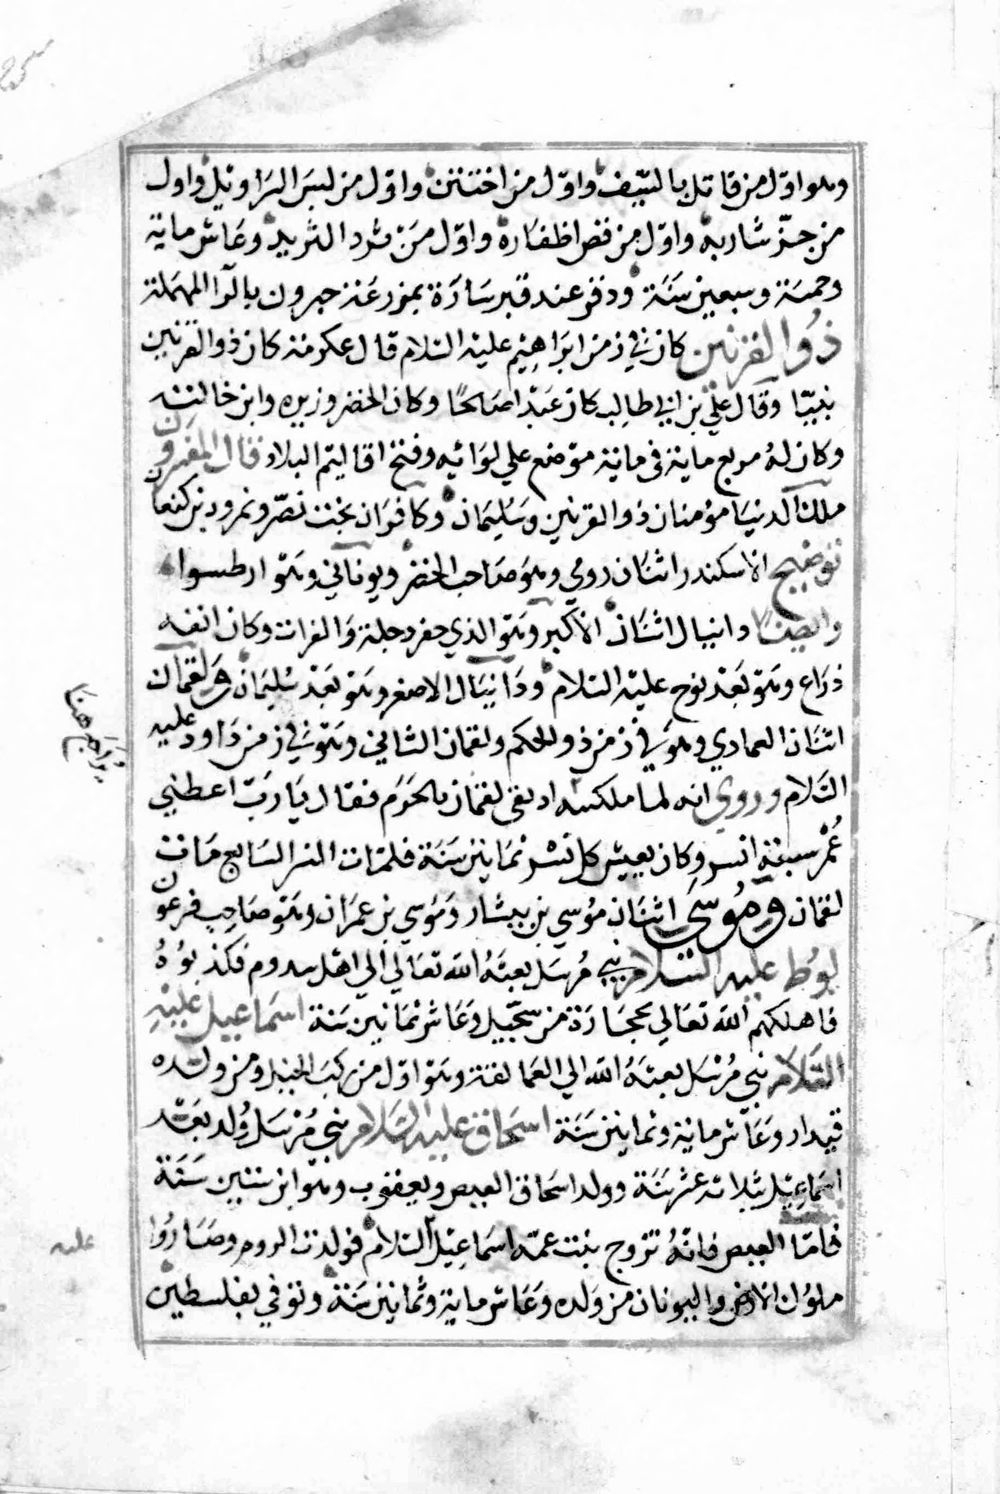 وهو اول من قاتل بالسيف واول من اختتن واول من لبس السراويل واول
من جز شاربه واول من قص اظفاره واول من ثرد الثريد وعاش ماية
وخمسة وسبعين سنة ودفن عند قبر سارة بمزرعة حبرون بالرا المهملة
ذو القرنين كان في زمن ابراهيم عليه السلام قال عكرمة كان ذو القرنين
نبيا وقال علي بن ابي طالب كان عبدا صالحا وكان الخضر وزيره وابن خالته
وكان له مربع ماية في ماية موضع علي لوائه وفتح اقاليم البلاد قال المفسرون
ملك الدنيا مؤمنان ذو القرنين وسليمان وكافران بخت نصر ونمرود بن كنعان
توضيح الاسكندر اثنان رومي وهو صاحب الخضر ويوناني وهو ارطسوا
وايضا دانيال اثنان الاكبر وهو الذي حفر دجلة والفرات وكان انفه
ذراع وهو بعد نوح عليه السلام ودانيال الاصغر وهو بعد سليمان ولقمان
اثنان العمادي وهو في زمن ذو الحكم ولقمان الثاني وهو في زمن داود عليه
السلام وروي انه لما ملكته اد بقي لقمان بالحرم فقال يا رب اعطني
عمر سبعة انسر وكان يعيش كل نسر ثمانين سنة فلما مات النسر السابع مات
لقمان وموسي اثنان موسي بن بيشار وموسي بن عمران وهو صاحب فرعون
لوط عليه السلام نبي مرسل بعثه الله تعالي الي اهل سدوم فكذبوه
فاهلكهم الله تعالي بحجارة من سجيل وعاش ثمانين سنة اسماعيل عليه
السلام نبي مرسل بعثه الله الي العمالقة وهو اول من ركب الخيل ومن ولده
قيدار وعاش ماية وثمانين سنة اسحاق عليه السلام نبي مرسل ولد بعد
اسماعيل بثلاثة عشر سنة وولد اسحاق العيص ويعقوب وهو ابن ستين سنة
فاما العيص فانه تزوج بنت عمه اسماعيل السلام فولدت الروم وصاروا
ملوك الارض واليونان من ولده وعاش ماية وثمانين سنة وتوفي بفلسطين
عليه